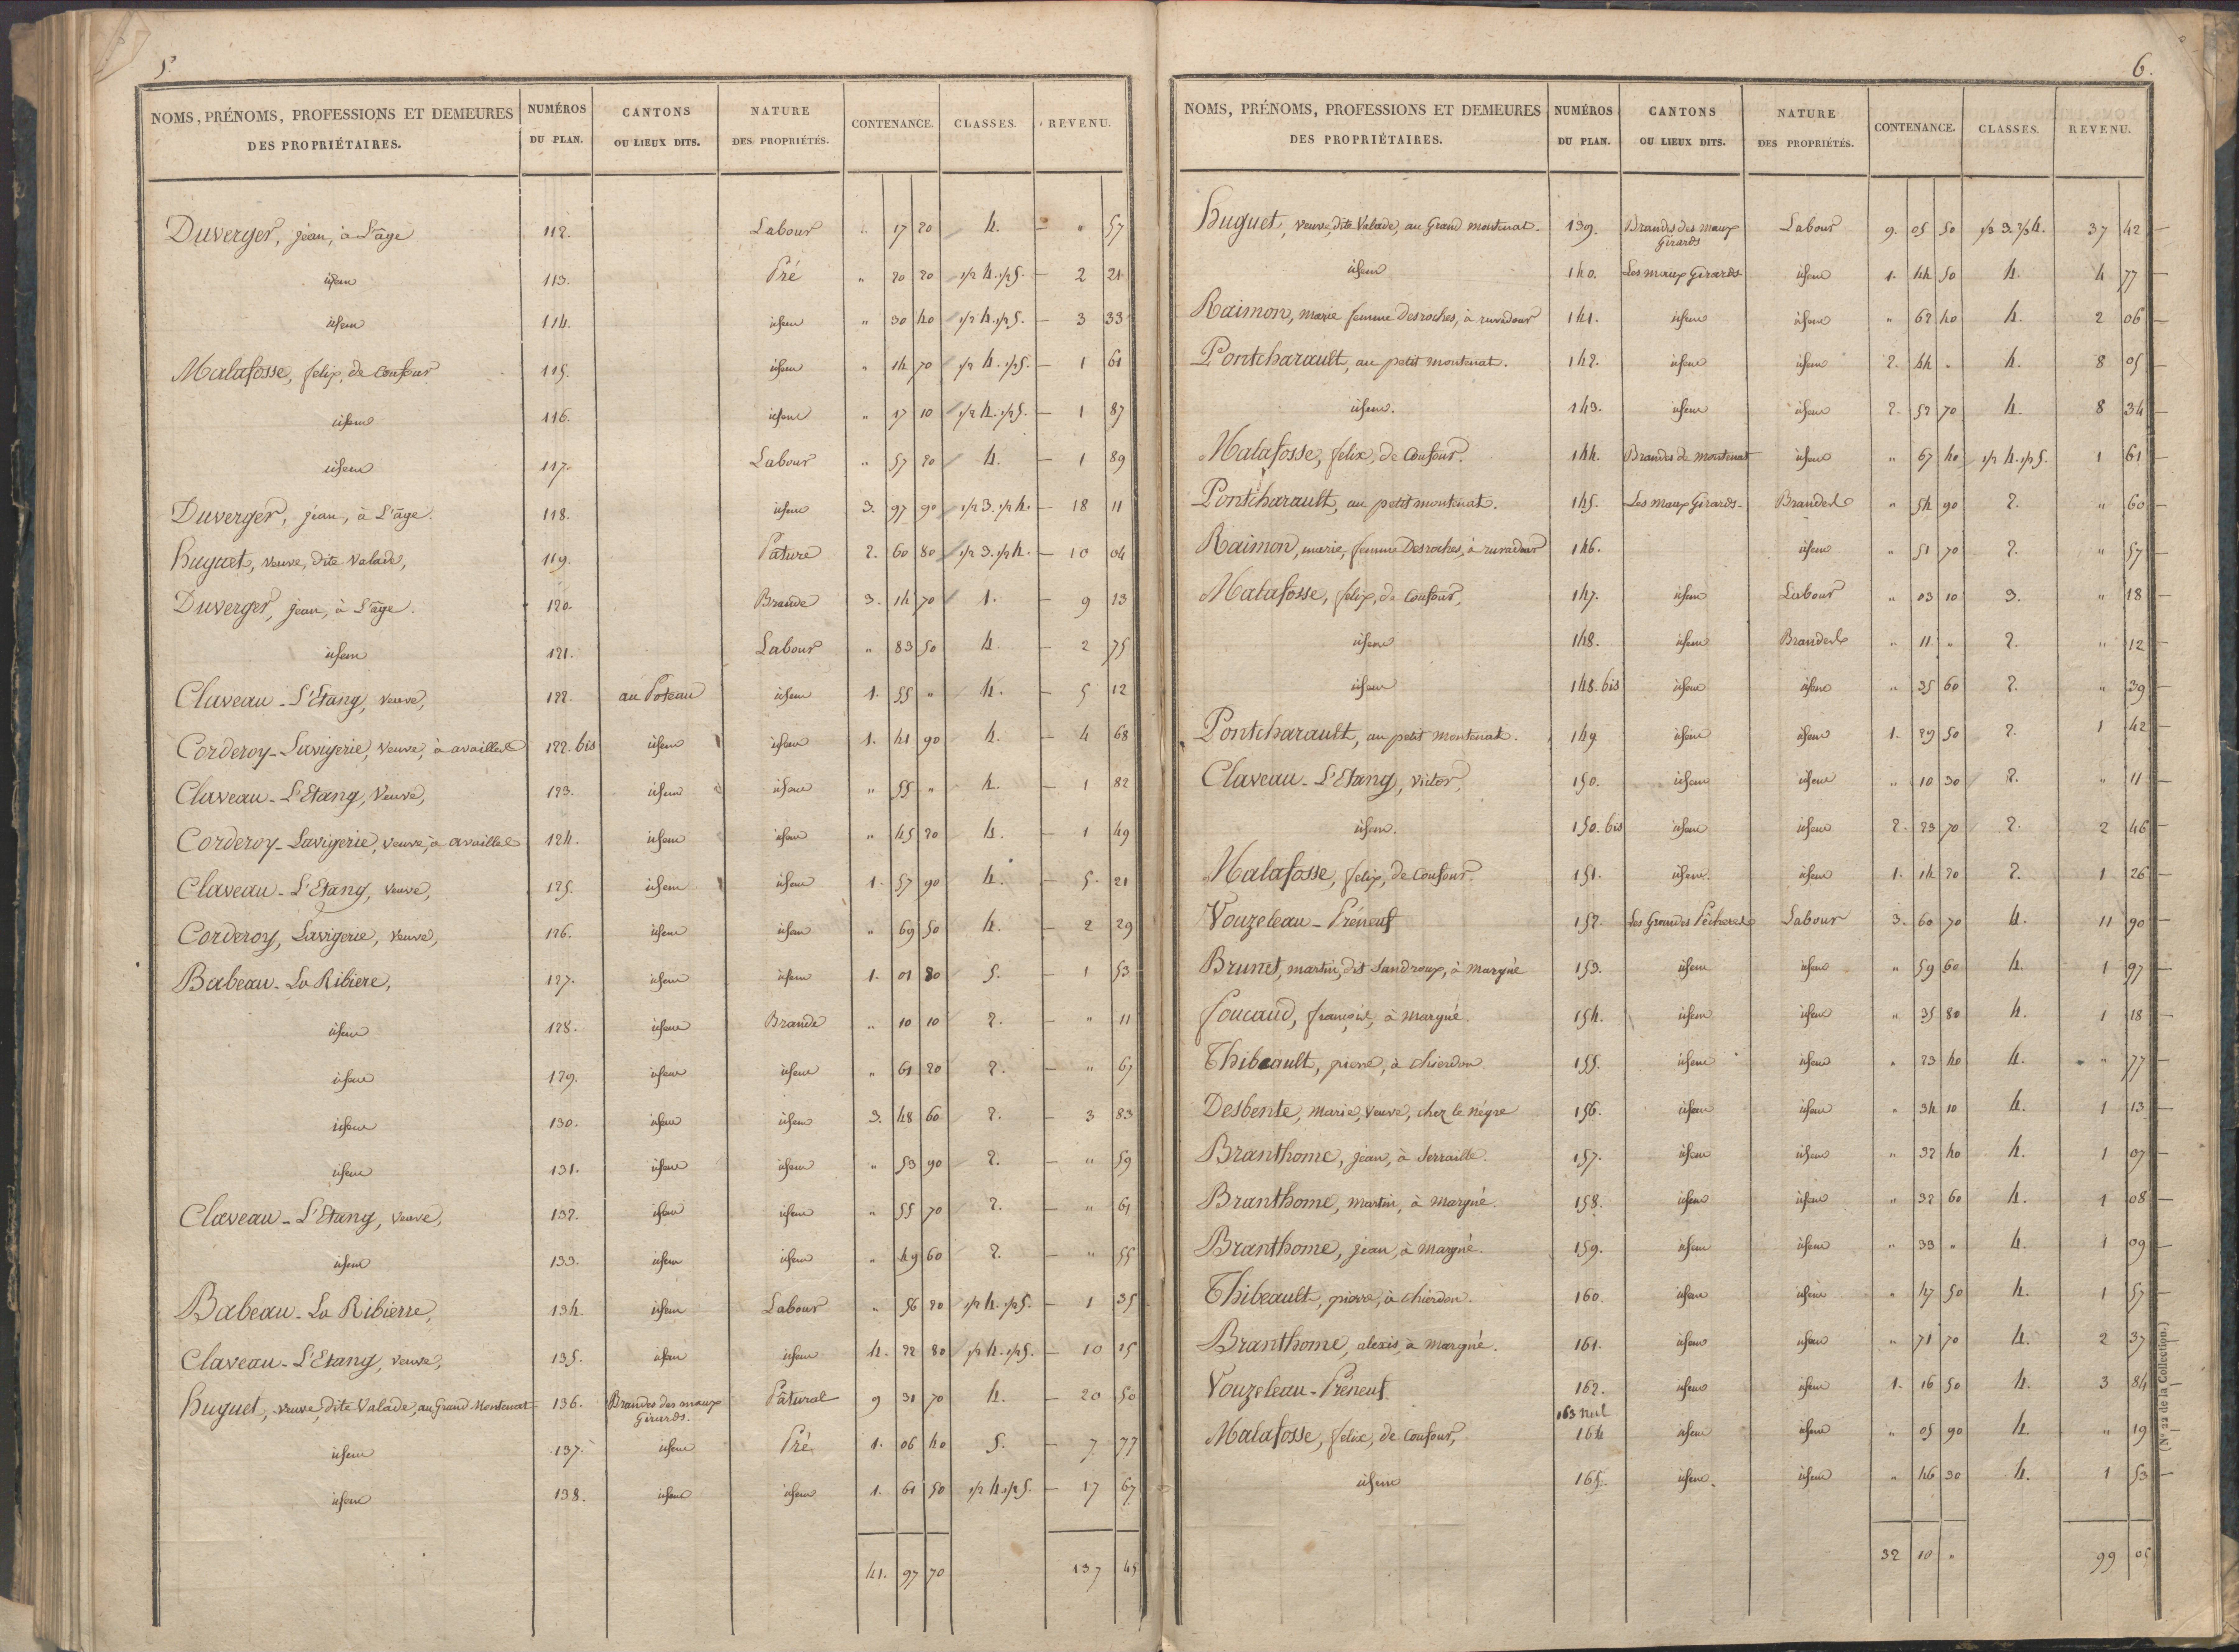 5.
NOMS, PRÉNOMS, PROFESSIONS ET DEMEURES DES PROPRIÉTAIRES. NUMÉROS DU PLAN. CANTONS OU LIEUX DITS. NATURE DES PROPRIÉTÉS. CONTENANCE. CLASSES. REVENU.
Duverger, jean, à L'âge 112. Labour " 17 20 4. " 57
idem 113. Pré " 20 20 1/2 4. 1/2 5. 2 21
idem 114. idem " 30 40 1/2 4. 1/2 5. 3 33
Malafosse, felix, de Confour 115. idem " 14 70 1/2 4. 1/2 5. 1 61
idem 116. idem " 17 10 1/2 4. 1/2 5. 1 87
idem 117. Labour " 57 20 4. 1 89
Duverger, jean, à L'âge. 118. idem 3. 97 90 1/2 3. 1/2 4. 18 11
huguet, veuve, dite Valade, 119. Pâture 2. 60 80 1/2 3. 1/2 4. 10 04
Duverger, jean, à L'âge. 120. Brande 3. 14 70 1. 9 13
idem 121. Labour " 83 50 4. 2 75
Claveau-L'Etang, veuve, 122. au Poteau idem 1. 55 " 4. 5 12
Corderoy-Lavigerie, veuve, à availles 122. bis idem idem 1. 41 90 4. 4 68
Claveau-L'Etang, Veuve, 123. idem idem " 55 " 4. 1 82
Corderoy-Lavigerie, veuve, à availles 124. idem idem " 45 20 4. 1 49
Claveau-L'Etang, veuve, 125. idem idem 1. 57 90 4. 5 21
Corderoy, Lavigerie, veuve, 126. idem idem " 69 50 4. 2 29
Babeau-La Ribiere, 127. idem idem 1. 01 80 5. 1 53
idem 128. idem Brande " 10 10 2. " 11
idem 129. idem idem " 61 20 2. " 67
idem 130. idem idem 3. 48 60 2. 3 83
idem 131. idem idem " 53 90 2. " 59
Claveau-L'Etang, veuve, 132. idem idem " 55 70 2. " 61
idem 133. idem idem " 49 60 2. " 55
Babeau-La Ribierre, 134. idem Labour " 56 20 1/2 4. 1/2 5. 1 35
Claveau-L'Etang, veuve, 135. idem idem 4. 22 80 1/2 4. 1/2 5. 10 15
huguet, veuve, dite Valade, au Grand Montenat 136. Brandes des maux Girards. Pâtural 9 31 70 4. 20 50
idem 137. idem Pré 1. 06 40 5. 7 77
idem 138. idem idem 1. 61 50 1/2 4. 1/2 5. 17 67
41. 97 70 137 45
6.
NOMS, PRÉNOMS, PROFESSIONS ET DEMEURES DES PROPRIÉTAIRES. NUMÉROS DU PLAN. CANTONS OU LIEUX DITS. NATURE DES PROPRIÉTÉS. CONTENANCE. CLASSES. REVENU.
huguet, veuve, dite Valade, au Grand montenat. 139. Brandes des maux Girards Labour 9. 05 50 1/3 3. 2/3 4. 37 42
idem 140. Les maux Girards idem 1. 44 50 4. 4 77
Raimon, marie femme Desroches, à ruvadour 141. idem idem " 62 40 4. 2 06
Pontcharault, au petit montenat. 142. idem idem 2. 44 " 4. 8 05
idem. 143. idem idem 2. 52 70 4. 8 34
Malafosse, felix, de Confour. 144. Brandes de montenat idem " 67 40 1/2 4. 1/2 5. 1 61
Pontcharault, au petit montenat. 145. Les maux Girards Brandes " 54 90 2. " 60
Raimon, marie, femme Desroches, à ruvadour 146. idem " 51 70 2. " 57
Malafosse, felix, de Confour, 147. idem Labour " 03 10 3. " 18
idem 148. idem Brandes " 11 " 2. " 12
idem 148. bis idem idem " 35 60 2. " 39
Pontcharault, au petit montenat. 149 idem idem 1. 29 50 2. 1 42
Claveau-L'Etang, victor, 150. idem idem " 10 30 2. " 11
idem. 150. bis idem idem 2. 23 70 2. 2 46
Malafosse, felix, de Confour. 151. idem. idem 1. 14 20 2. 1 26
Vouzeleau-Préneuf 152. Les Grandes Pécheres Labour 3. 60 70 4. 11 90
Brunet, martin, dit Landroux, à margné 153. idem idem " 59 60 4. 1 97
foucaud, françois, à margné. 154. idem idem " 35 80 4. 1 18
Thibeault, pierre, à chierdon 155. idem idem " 23 40 4. " 77
Desbente, marie, veuve, chez le négre 156. idem idem " 34 10 4. 1 13
Branthome, jean, à Serraille. 157. idem idem " 32 40 4. 1 07
Branthome, martin, à margné. 158. idem idem " 32 60 4. 1 08
Branthome, jean, à margné. 159. idem idem " 33 " 4. 1 09
Thibeault, pierre, à chierdon. 160. idem idem " 47 50 4. 1 57
Branthome, alexis, à margné. 161. idem idem " 71 70 4. 2 37
Vouzeleau-Préneuf. 162. idem idem 1. 16 50 4. 3 84
163 nul
Malafosse, felix, de Confour, 164 idem idem " 05 90 4. " 19
idem 165. idem. idem " 46 30 4. 1 53
32 10 " 99 05
(N° 22 de la Collection.)